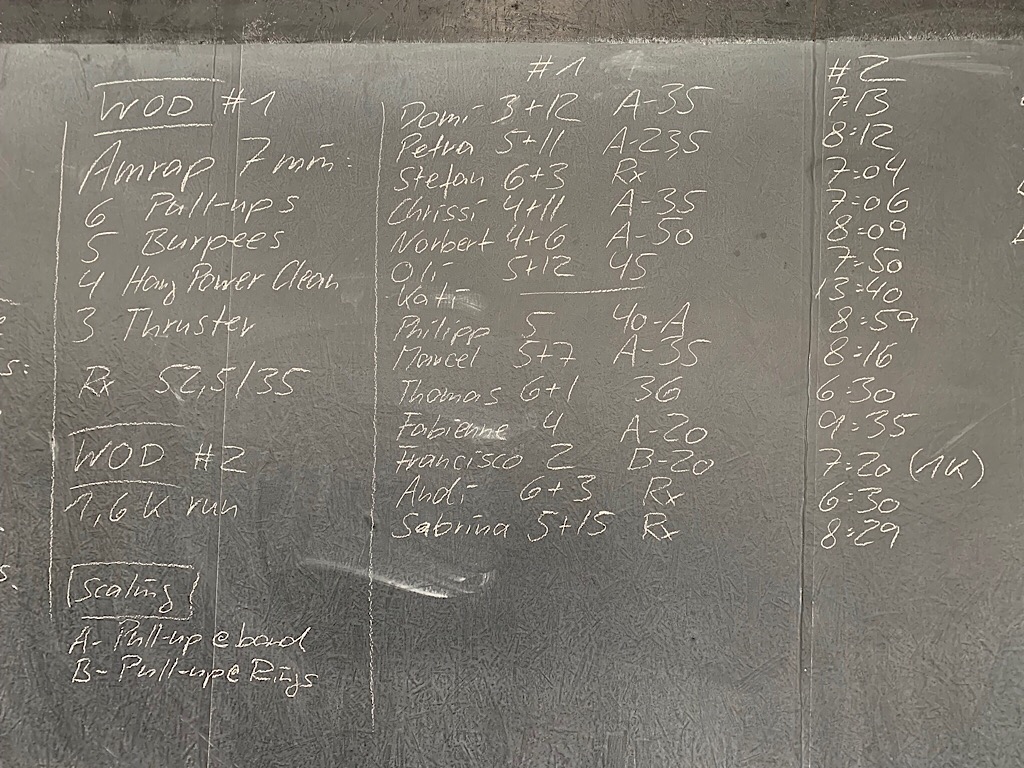 WOD #1
Amrap 7 min:
6 Pull-ups
5 Burpees
4 Hang Power Clean
3 Thruster
Rx 52,5/35
WOD #2
1,6 K run
Scaling
A- Pull-up @ band
B- Pull-up @ Rings
#1 #2
Domi 3+12 A-35 7:13
Petra 5+11 A-23,5 8:12
Stefan 6+3 Rx 7:04
Chrissi 4+11 A-35 7:06
Norbert 4+6 A-50 8:09
Oli 5+12 45 7:50
Kati — 13:40
Philipp 5 40-A 8:59
Marcel 5+7 A-35 8:16
Thomas 6+1 36 6:30
Fabienne 4 A-20 9:35
Francisco 2 B-20 7:20 (1K)
Andi 6+3 Rx 6:30
Sabrina 5+15 Rx 8:29